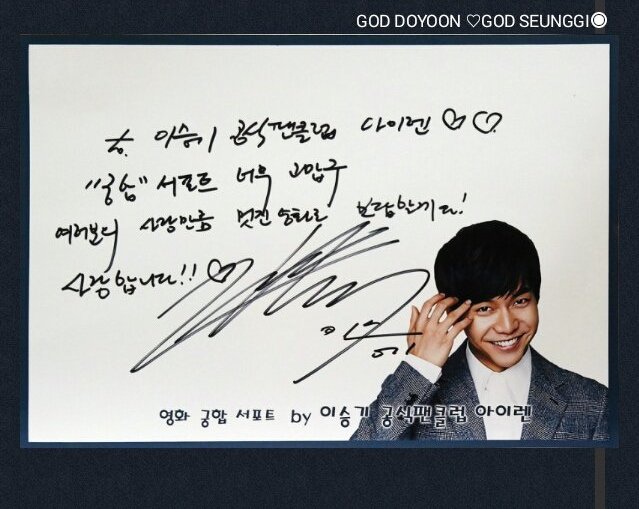 GOD DOYOON ♡GOD SEUNGGI◉
to. 이승기 공식팬클럽 아이렌 ♡♡
"궁합" 서포트 너무 고맙구
여러분의 사랑만큼 멋진 영화로 보답할게요!
사랑합니다!! ♡
영화 궁합 서포트 by 이승기 공식팬클럽 아이렌